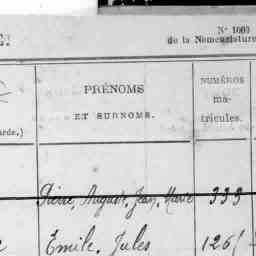 N° 1003
de la Nomenclature
PRÉNOMS
ET SURNOMS.
NUMÉROS
ma-
tricules.
arde.)
Pierre, Auguste, Jean, Marie 333
Emile, Jules